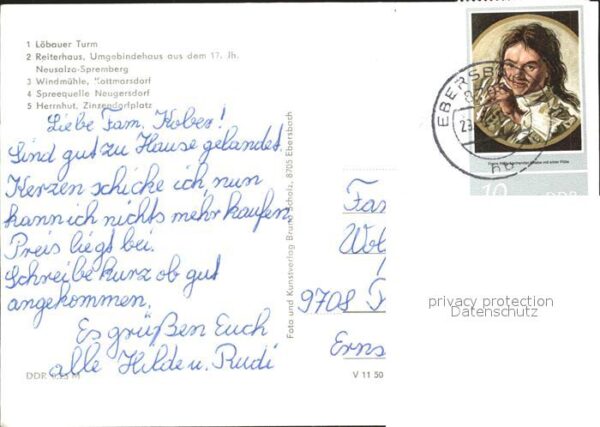 1 Löbauer Turm
2 Reiterhaus, Umgebindehaus aus dem 17. Jh.
Neusalza-Spremberg
3 Windmühle, Kottmarsdorf
4 Spreequelle Neugersdorf
5 Herrnhut, Zinzendorfplatz
Liebe Fam. Kober!
Sind gut zu Hause gelandet.
Kerzen schicke ich, nun
kann ich nichts mehr kaufen
Preis liegt bei.
Schreibe kurz ob gut
angekommen.
Es grüßen Euch
alle Hilde u. Rudi
DDR 0,25 M
V 11 50
Foto und Kunstverlag Bruno Scholz, 8705 Ebersbach
EBERSB
10 DDR
Fam
9708
Erns
privacy protection
Datenschutz